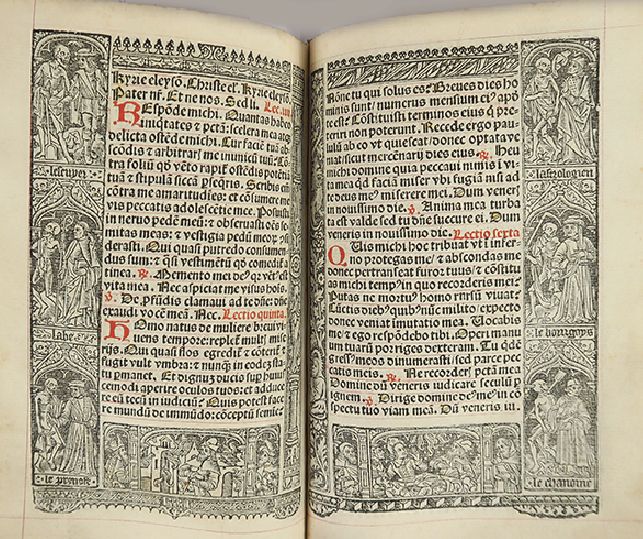 Kyrie eleysõ. Christe el. Kyrie eleysõ.
Pater nr̃. Et ne nos. Sed li. Lec. iiii.
REspõde michi. Quantas habeo
iniqtates & pctã: scelera mea atq;
delicta ostẽde michi. Cur faciẽ tuã ab
scõdis & arbitrar̃ me inimicũ tuũ: Cõ
tra foliũ qd̃ vẽto rapit̃ ostẽdis potẽtiã
tuã & stipulã siccã pseqris. Scribis em̃
cõtra me amaritudĩes: et cõsumere me
vis peccatis adolescẽtie mee. Posuisti
in neruo pedẽ meũ: & obseruasti oẽs
semitas meas: & vestigia pedũ meoꝝ cõsi
derasti. Qui quasi putredo consumen
dus sum: & q̃si vestimẽtũ qd̃ comedit̃ a
tinea. ℟. Memento mei de⁹ qr vẽt⁹ est
vita mea. Nec aspiciat me visus hoĩs.
℣. De pfũdis clamaui ad te dñe: dñe
exaudi vocẽ meã. Nec. Lectio quinta.
HOmo natus de muliere breui vi
uens tempore: replet̃ mult̃ mise
rijs. Qui quasi flos egredit̃ & cõterit̃ &
fugit velut vmbra: et nunq̃ in eodẽ sta
tu pmanet. Et dignũ ducis sup huius
cemodi aperire oculos tuos: et adduce
re eũ tecũ in iudiciũ? Quis potest face
re mundũ de immũdo: cõceptũ semine
labe
Nõne tu qui solus es? Breues dies ho
minis sunt: numerus mensium ei⁹ apd̃
te est: Cõstituisti terminos eius q̃ pre
terire non poterunt. Recede ergo pau
lulũ ab eo vt quiescat: donec optata ve
niat sicut mercẽnarij dies eius. ℟. Heu
michi domine quia peccaui nimis ĩ vi
ta mea qd̃ faciã miser vbi fugiã nisi ad
te deus me⁹ miserere mei. Dum veneris
in nouissimo die. ℣. Anima mea turba
ta est valde sed tu dñe succurre ei. Dum
veneris in nouissimo die. Lectio sexta
QUis michi hoc tribuat vt ĩ infer
no protegas me: & abscondas me
donec pertranseat furor tuus: & cõstitu
as michi temp⁹ in quo recorderis mei?
Putas ne mortu⁹ homo rursũ viuat?
Cũctis dieb⁹ quib⁹ nũc milito: expecto
donec veniat ĩmutatio mea. Uocabis
me: & ego respõdebo tibi. Operi manu
um tuarũ porriges dexteram. Tu qdẽ
gress⁹ meos dinumerasti: sed parce pec
catis meis. ℟. Ne recorder̃ pctã mea
Domine dũ veneris iudicare seculũ p
ignem. ℣. Dirige domine de⁹ me⁹ in cõ
spectu tuo viam meã. Dũ veneris iu.
le bourgoys
le chanoine